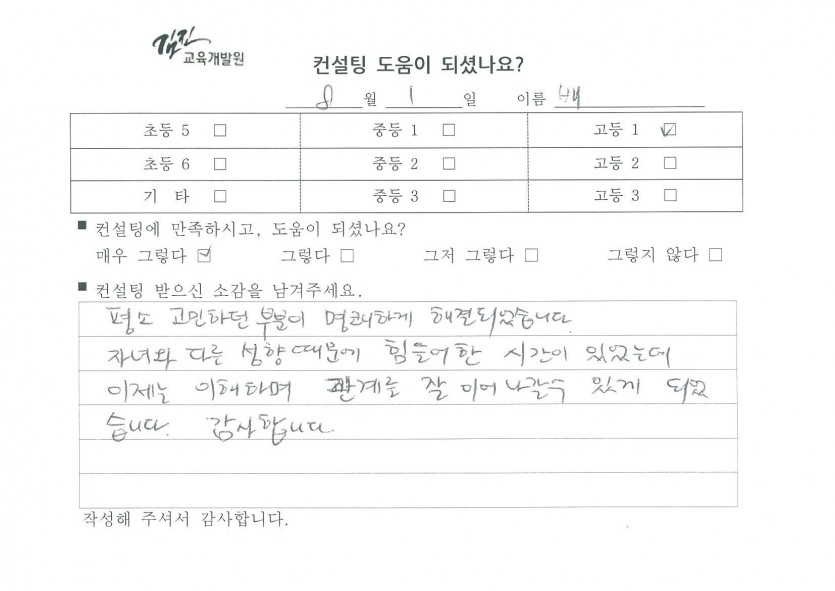 김진
교육개발원
컨설팅 도움이 되셨나요?
8 월 1 일 이름 배
초등 5 □ 중등 1 □ 고등 1 ☑
초등 6 □ 중등 2 □ 고등 2 □
기 타 □ 중등 3 □ 고등 3 □
■ 컨설팅에 만족하시고, 도움이 되셨나요?
매우 그렇다 ☑ 그렇다 □ 그저 그렇다 □ 그렇지 않다 □
■ 컨설팅 받으신 소감을 남겨주세요.
평소 고민하던 부분이 명쾌하게 해결되었습니다.
자녀와 다른 성향때문에 힘들어한 시간이 있었는데
이제는 이해하며 관계를 잘 이어나갈수 있게 되었
습니다. 감사합니다.
작성해 주셔서 감사합니다.